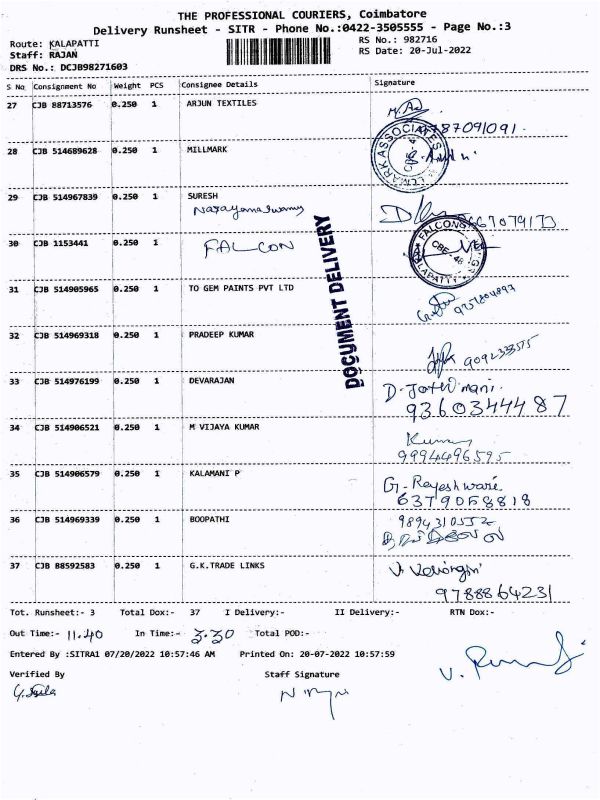 THE PROFESSIONAL COURIERS, Coimbatore
Delivery Runsheet - SITR - Phone No.:0422-3505555 - Page No.:3
Route: KALAPATTI RS No.: 982716
Staff: RAJAN RS Date: 20-Jul-2022
DRS No.: DCJB98271603
S No Consignment No Weight PCS Consignee Details Signature
27 CJB 88713576 0.250 1 ARJUN TEXTILES
87091091
28 CJB 514689628 0.250 1 MILLMARK
29 CJB 514967839 0.250 1 SURESH
Narayanaswamy
30 CJB 1153441 0.250 1 FALCON
FALCONS
CBE-48
31 CJB 514905965 0.250 1 TO GEM PAINTS PVT LTD
DOCUMENT DELIVERY
32 CJB 514969318 0.250 1 PRADEEP KUMAR
33 CJB 514976199 0.250 1 DEVARAJAN
D. Jothimani.
9360344487
34 CJB 514906521 0.250 1 M VIJAYA KUMAR
Kumar
9994496595
35 CJB 514906579 0.250 1 KALAMANI P
G. Rajeshwari
6379058818
36 CJB 514969339 0.250 1 BOOPATHI
37 CJB 88592583 0.250 1 G.K.TRADE LINKS
9788864231
Tot. Runsheet:- 3 Total Dox:- 37 I Delivery:- II Delivery:- RTN Dox:-
Out Time:- 11.40 In Time:- 3.30 Total POD:-
Entered By :SITRA1 07/20/2022 10:57:46 AM Printed On: 20-07-2022 10:57:59
Verified By Staff Signature